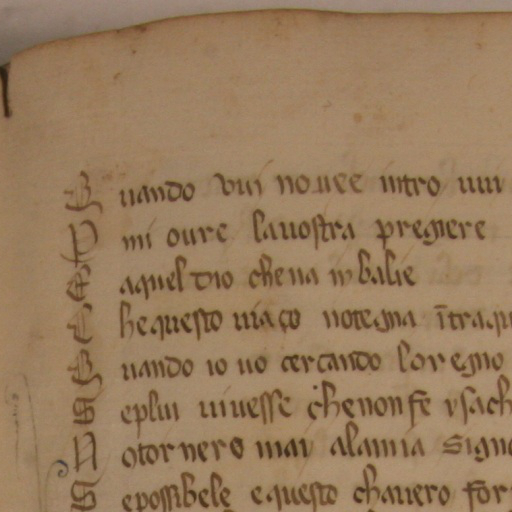 Quando vui no vee intro vui
Dmi oure la uostra pregiere
E aquel dio che na in balie
Che questo uiaço no tegna ītra qu
Quando io uo cercando lo regno
Se plui uiuesse che non fe ysach
No tornero mai ala mia Sign
Se possibele e questo chauero for